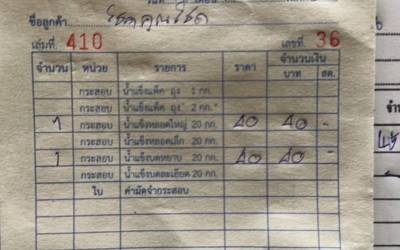 ชื่อลูกค้า
เล่มที่ 410 เลขที่ 36
จำนวน หน่วย รายการ ราคา จำนวนเงิน
บาท สต.
กระสอบ น้ำแข็งแพ็ค ถุง 1 กก.
กระสอบ น้ำแข็งแพ็ค ถุง 2 กก.
1 กระสอบ น้ำแข็งหลอดใหญ่ 20 กก. 40 40 -
กระสอบ น้ำแข็งหลอดเล็ก 20 กก.
1 กระสอบ น้ำแข็งบดหยาบ 20 กก. 40 40 -
กระสอบ น้ำแข็งบดละเอียด 20 กก.
ใบ ค่ามัดจำกระสอบ